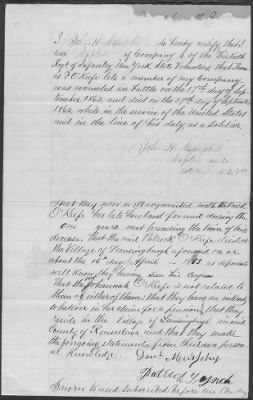 I John H. Campbell do hereby certify that I
am Captain of Company I of the Thirtieth
Regt of Infantry New York State Volunteers that Thom
as O'Keife late a member of my Company
was wounded in battle on the 17th day of Sep
tember 1862 and died on the 27th day of September
1862 while in the service of the United States
and in the line of his duty as a soldier.
John H. Campbell
that they were well acquainted with Patrick
O'Keife her late husband for and during the
one years next preceding the time of his
decease, that the said Patrick O'Keife died at
the Village of Lansingburgh aforesaid on or
about the 16th day of April 1855 as deponents
well know they having seen his corpse
that Johannah O'Keife is not related to
them or either of them that they have no interest
whatever in her claim for a pension, that they
reside in the Village of Lansingburgh in said
County of Rensselaer and that they make
the foregoing statements from their own person
al knowledge
Danl Murphy
Patk Lynch
Sworn to and subscribed before me this day